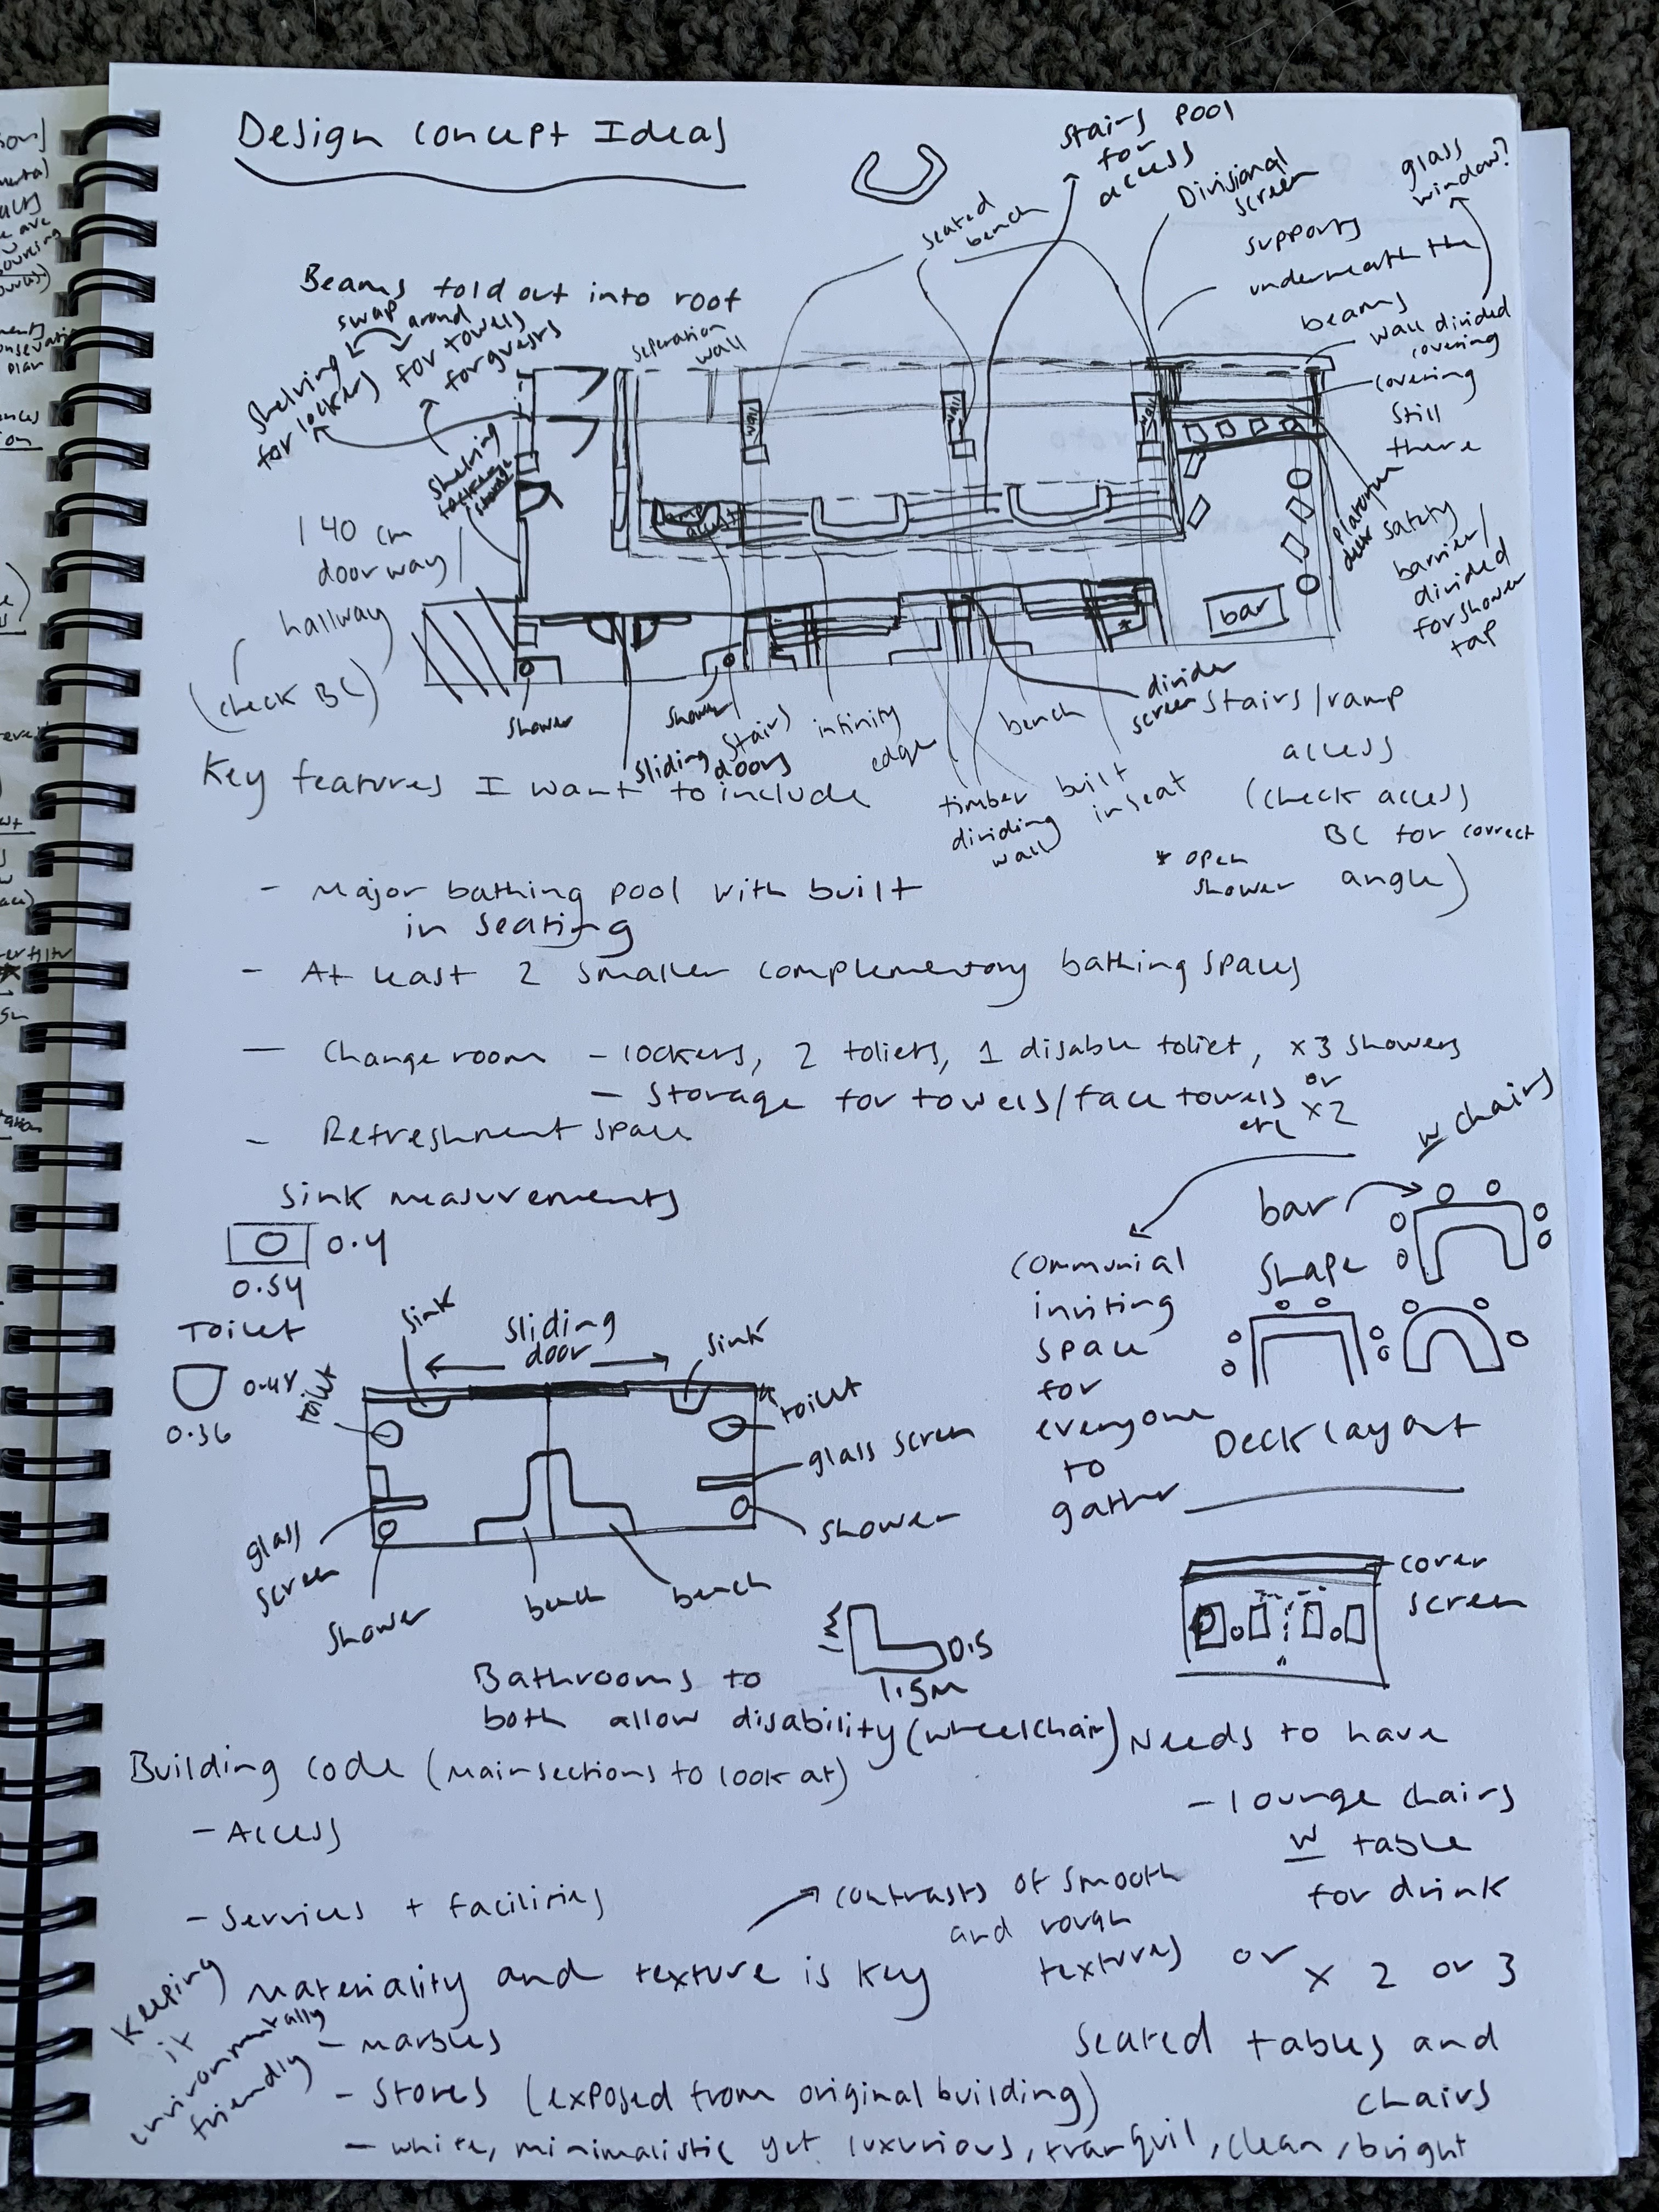 Design concept Ideas
stairs pool
for
access
Divisional
screen
glass
window?
seated
bench
supports
underneath the
beams
wall divided
covering
covering
still
there
Beams fold out into roof
swap around
shelving
for lockers
for towels
for guests
seperation
wall
shelving
storage
wall
wall
wall
140 cm
doorway/
hallway
(check BC)
bar
safety
barrier/
divided
for shower
tap
shower
shower
sliding
doors
stairs
infinity
edge
bench
divider
screen
stairs/ramp
access
(check access
BC for correct
angle)
timber
dividing
wall
built
in seat
* open
shower
Key features I want to include
- Major bathing pool with built
in seating
- At least 2 smaller complementory bathing spaces
- Change room - lockers, 2 toliets, 1 disable toliet, x3 showers
or
x2
- Storage for towels/face towels
etc
- Refreshment space
Sink measurements
0.4
0.54
Toilet
0.48
0.36
sink
sliding
door
sink
toilet
toilet
glass screen
shower
glass
screen
shower
bench
bench
communial
inviting
space
for
everyone
to
gather
w chairs
bar
shape
Deck layout
cover
screen
0.5
1.5m
Bathrooms to
both allow disability (wheelchair)
Needs to have
- lounge chairs
w table
for drink
or x 2 or 3
seated tables and
chairs
Building code (main sections to look at)
- Access
- Services + facilities
contrasts of smooth
and rough
textures
Materiality and texture is key
keeping
it
environmentally
friendly
- marbles
- Stones (exposed from original building)
- white, minimalistic yet luxurious, tranquil, clean, bright